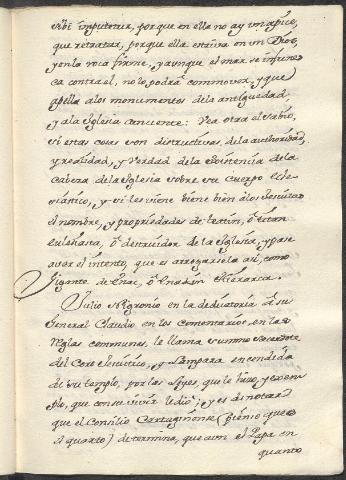 sibi imputetur, porque en ella no ay un apice,
que retratar, porque ella estriva en un Dios,
y en la roca firme, y aunque el mar se
ca contra el, no lo podrà commover, y que
apella alos monumentos dela antiguedad,
y ala Iglesia conviente: Vea otra el sabio,
si estas cosas son distructivas dela authoridad,
y realidad, y verdad dela existencia dela
Cabeza dela Iglesia sobre su cuerpo Ecle
siastico, y si les viene bien alos Jesuitas
el nombre, y propriedades de
ò destruidor de la Iglesia, y pase
a ver el intento, que es arrogarsela asi, como
Gigante de Enac, ò Hierarca.
Julio Nigronio en la dedicatoria à su
General Claudio en los comentarios en las
Reglas communes, le llama summo sacerdote
del Coro Jesuitico, y Lampara encendida
de su templo, por las Leyes, que le hizo, y exem
plo, que con su vivir le diò; y es de notar
que el Consilio Cartaginense (pienso que es
el quarto) determina, que aun el Papa en
quanto